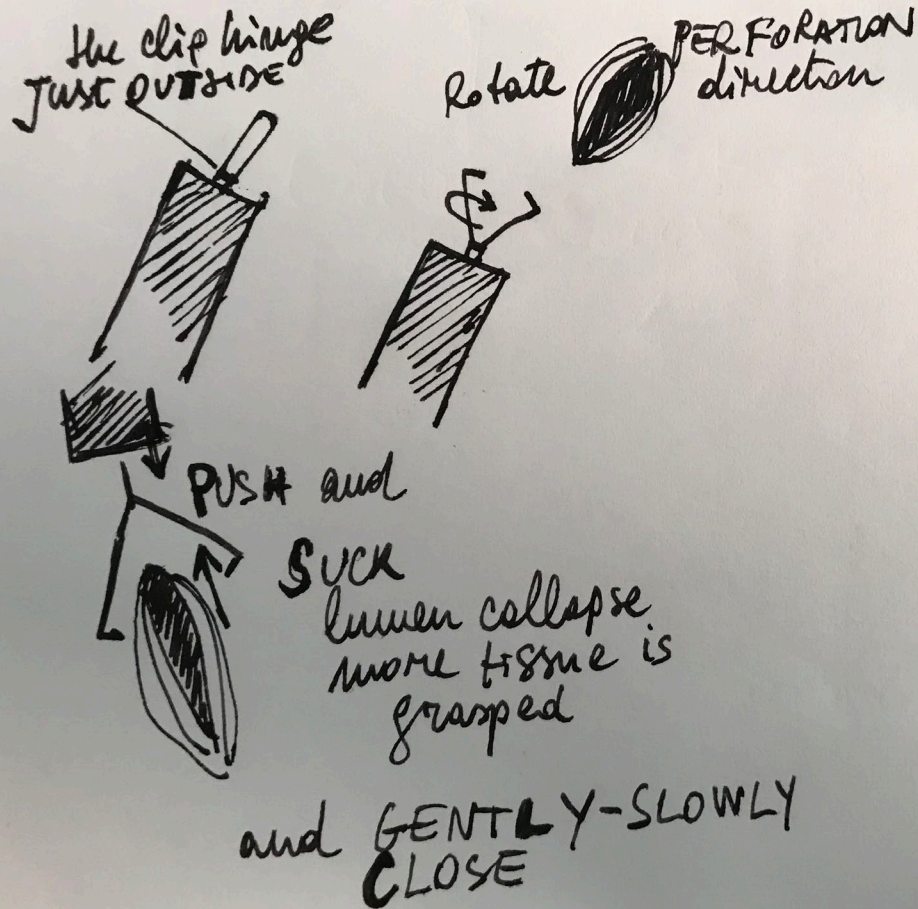 the clip hinge
JUST OUTSIDE
Rotate
PERFORATION
direction
PUSH and
SUCK
lumen collapse
more tissue is
grasped
and GENTLY-SLOWLY
CLOSE